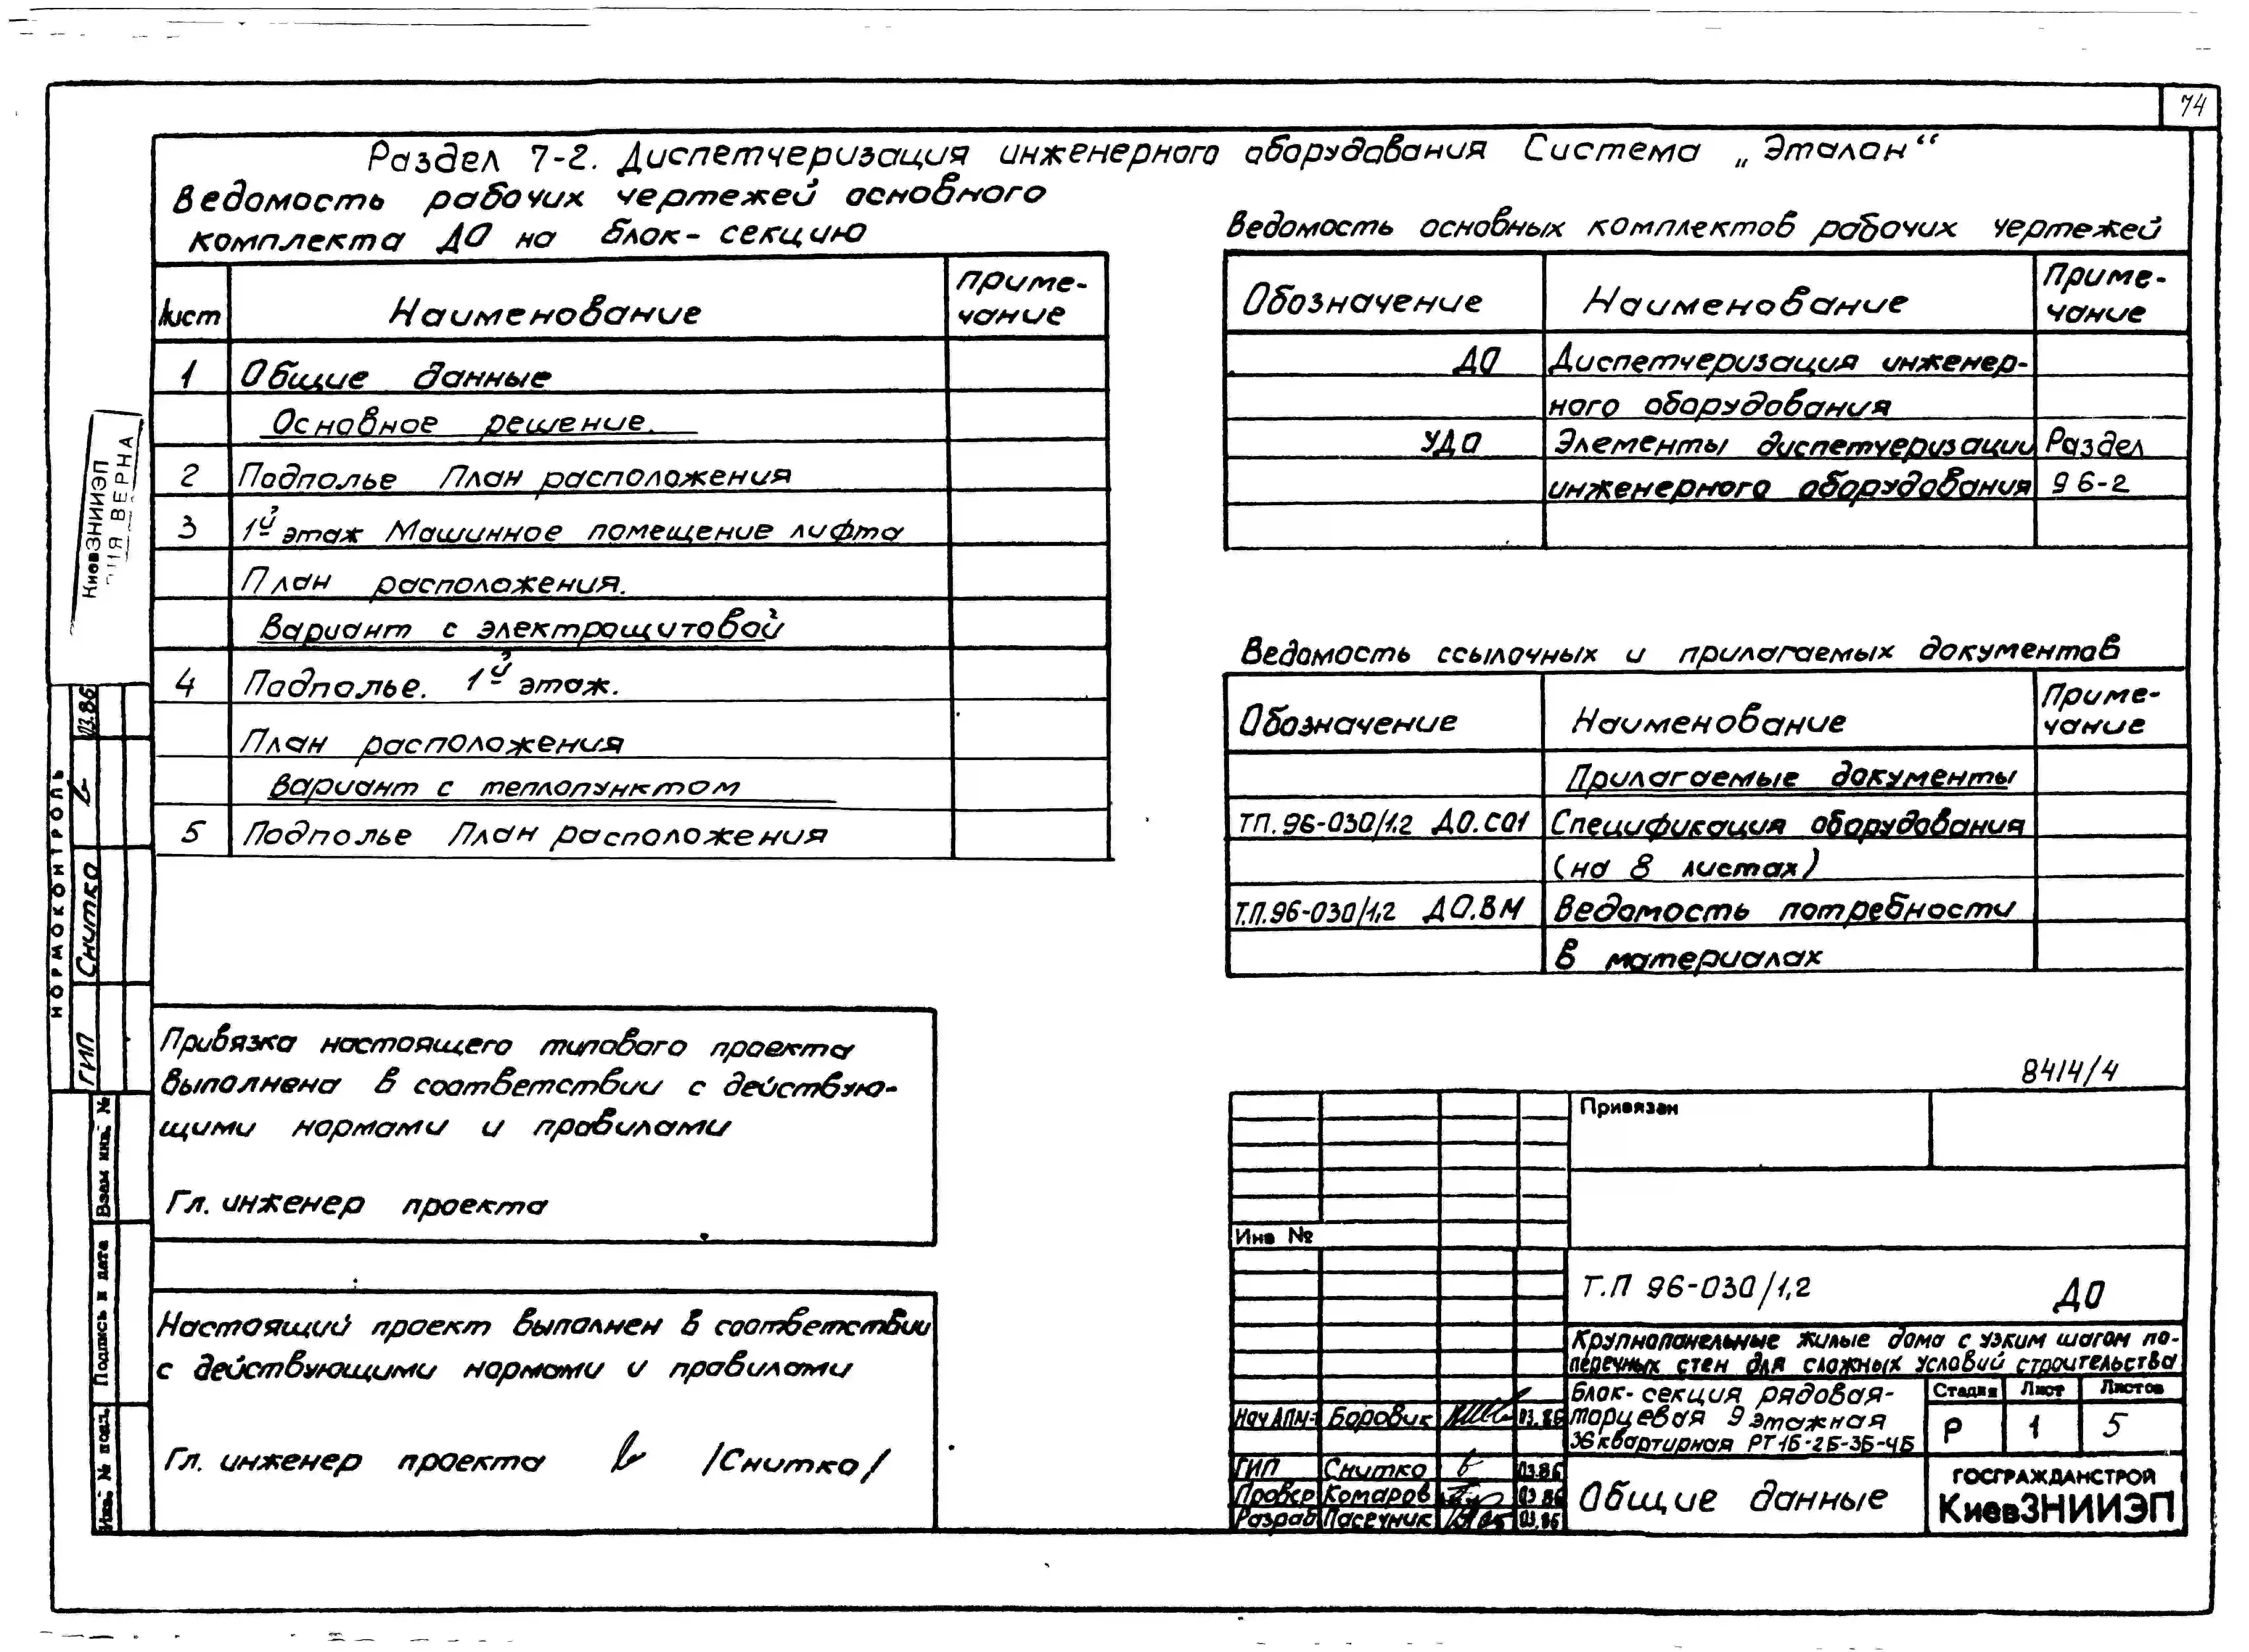 74
Раздел 7-2. Диспетчеризация инженерного оборудования Система „Эталон“
Ведомость рабочих чертежей основного
комплекта ДО на блок-секцию
Лист Наименование Приме-
чание
1 Общие данные
Основное решение.
2 Подполье План расположения
3 1й этаж Машинное помещение лифта
План расположения.
Вариант с электрощитовой
4 Подполье. 1й этаж.
План расположения
Вариант с теплопунктом
5 Подполье План расположения
Ведомость основных комплектов рабочих чертежей
Обозначение Наименование Приме-
чание
ДО Диспетчеризация инженер-
ного оборудования
УДО Элементы диспетчеризации Раздел
инженерного оборудования 9 6-2
Ведомость ссылочных и прилагаемых документов
Обозначение Наименование Приме-
чание
Прилагаемые документы
ТП.96-030/1.2 ДО.СО1 Спецификация оборудования
(на 8 листах)
Т.П.96-030/1,2 ДО.ВМ Ведомость потребности
в материалах
КиевЗНИИЭП
ВЕРНА
НОРМОКОНТРОЛЬ
ГИП Снитко 03.86
Взам инв. №
Подпись и дата
Инв. № подл.
Привязка настоящего типового проекта
выполнена в соответствии с действую-
щими нормами и правилами
Гл. инженер проекта
Настоящий проект выполнен в соответствии
с действующими нормами и правилами
Гл. инженер проекта /Снитко/
8414/4
Привязан
Инв №
Т.П 96-030/1,2 ДО
Крупнопанельные жилые дома с узким шагом по-
перечных стен для сложных условий строительства
Блок-секция рядовая-
торцевая 9 этажная
36 квартирная РТ 1Б-2Б-3Б-4Б
Стадия Лист Листов
Р 1 5
Нач АПМ- Боровик 03.86
ГИП Снитко 03.86
Провер Комаров 03.86
Разраб Пасечник 03.86
Общие данные
ГОСГРАЖДАНСТРОЙ
КиевЗНИИЭП